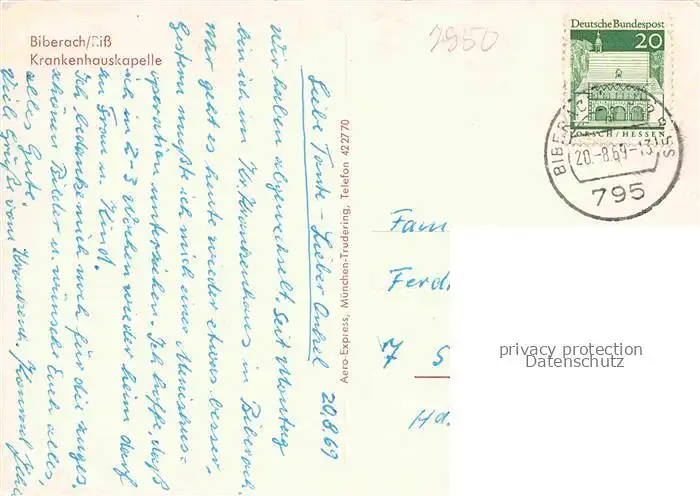 Biberach/Riß
Krankenhauskapelle
7950
Deutsche Bundespost
20
LORSCH/HESSEN
BIBERACH
20.-8.69-13
795
Aero-Express, München-Trudering, Telefon 422770
20.8.69
Liebe Tante - Lieber Onkel
Wir haben abgewechselt. Seit Montag
bin ich im Kr. Krankenhaus in Biberach.
Mir geht es heute wieder etwas besser,
Gestern mußte ich mich einer Meniskus-
operation unterziehen. Ich hoffe, daß
ich in 2-3 Wochen wieder heim darf
zu Frau u. Kind.
Ich bedanke mich noch für die zuges.
schönen Bilder u. wünsche Euch alles,
alles Gute.
Viele Grüße vom Konrad
Fam
Ferd
7 S
Ha
privacy protection
Datenschutz